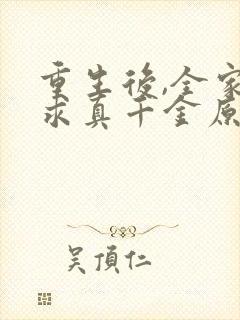 重生後,全家
求真千金原
吴頂仁